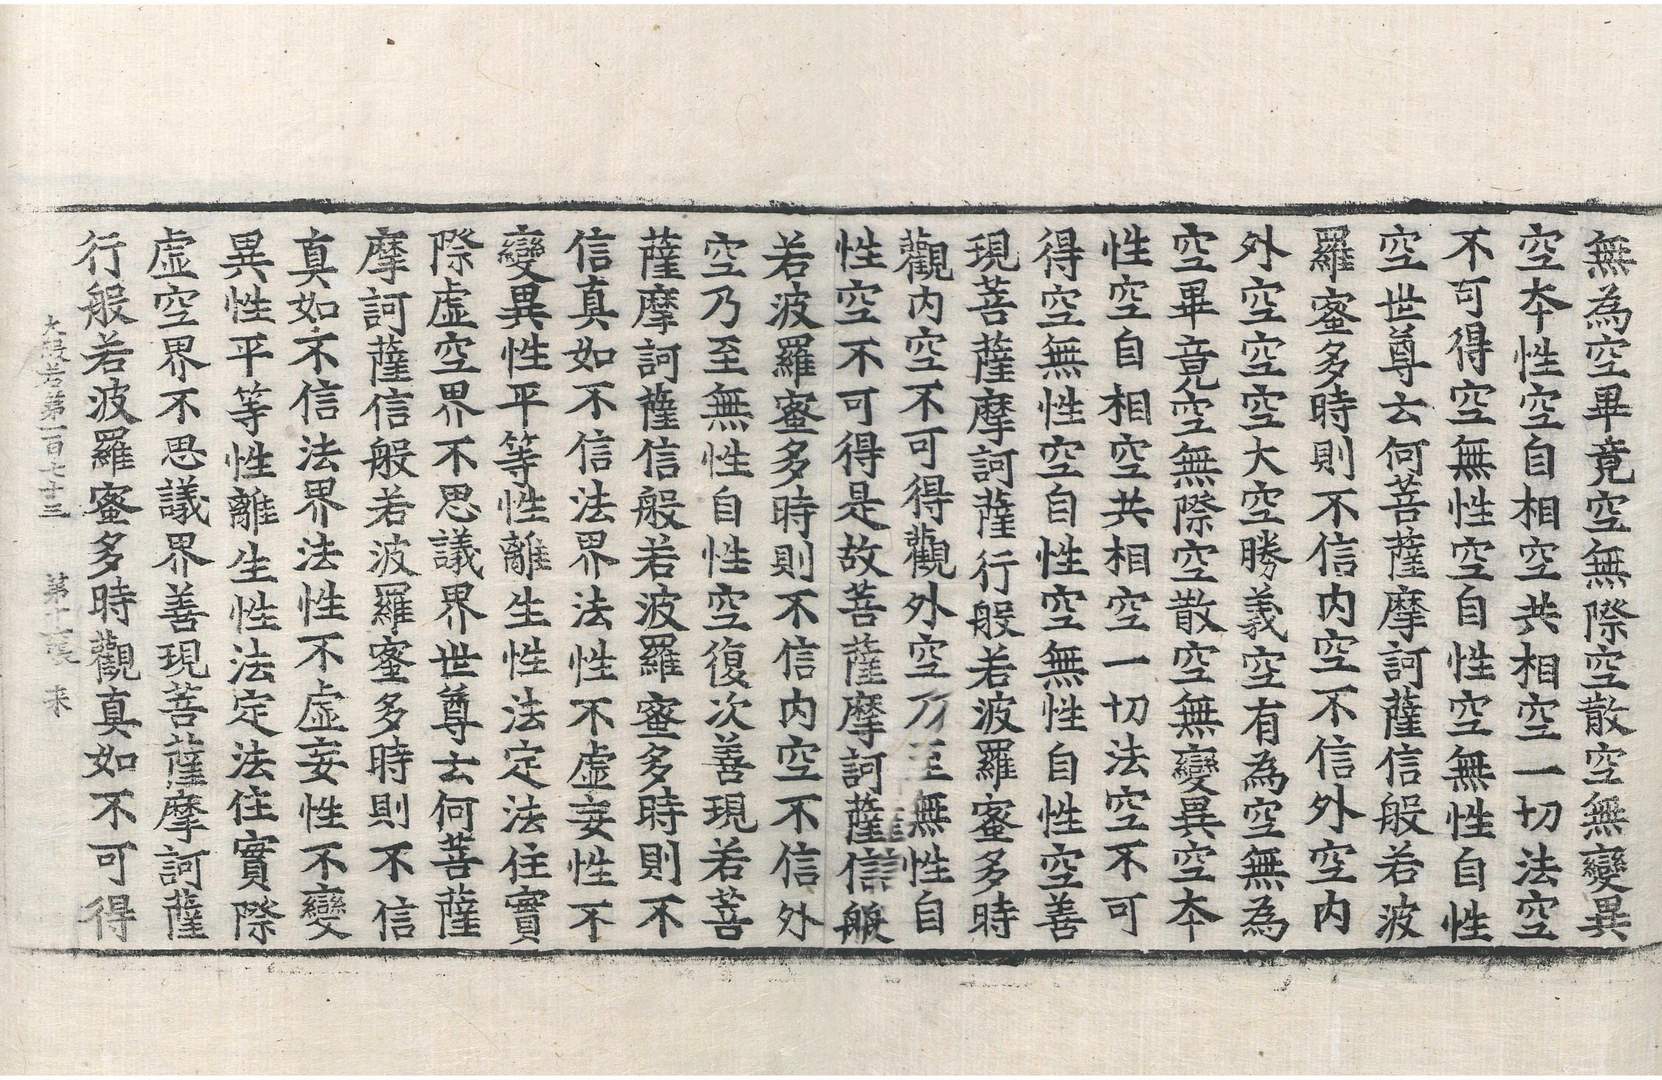 無為空畢竟空無際空散空無變異
空本性空自相空共相空一切法空
不可得空無性空自性空無性自性
空世尊云何菩薩摩訶薩信般若波
羅蜜多時則不信內空不信外空內
外空空空大空勝義空有為空無為
空畢竟空無際空散空無變異空本
性空自相空共相空一切法空不可
得空無性空自性空無性自性空善
現菩薩摩訶薩行般若波羅蜜多時
觀內空不可得觀外空乃至無性自
性空不可得是故菩薩摩訶薩信般
若波羅蜜多時則不信內空不信外
空乃至無性自性空復次善現若菩
薩摩訶薩信般若波羅蜜多時則不
信真如不信法界法性不虛妄性不
變異性平等性離生性法定法住實
際虛空界不思議界世尊云何菩薩
摩訶薩信般若波羅蜜多時則不信
真如不信法界法性不虛妄性不變
異性平等性離生性法定法住實際
虛空界不思議界善現菩薩摩訶薩
行般若波羅蜜多時觀真如不可得
大般若第一百七十三 第十 張 来